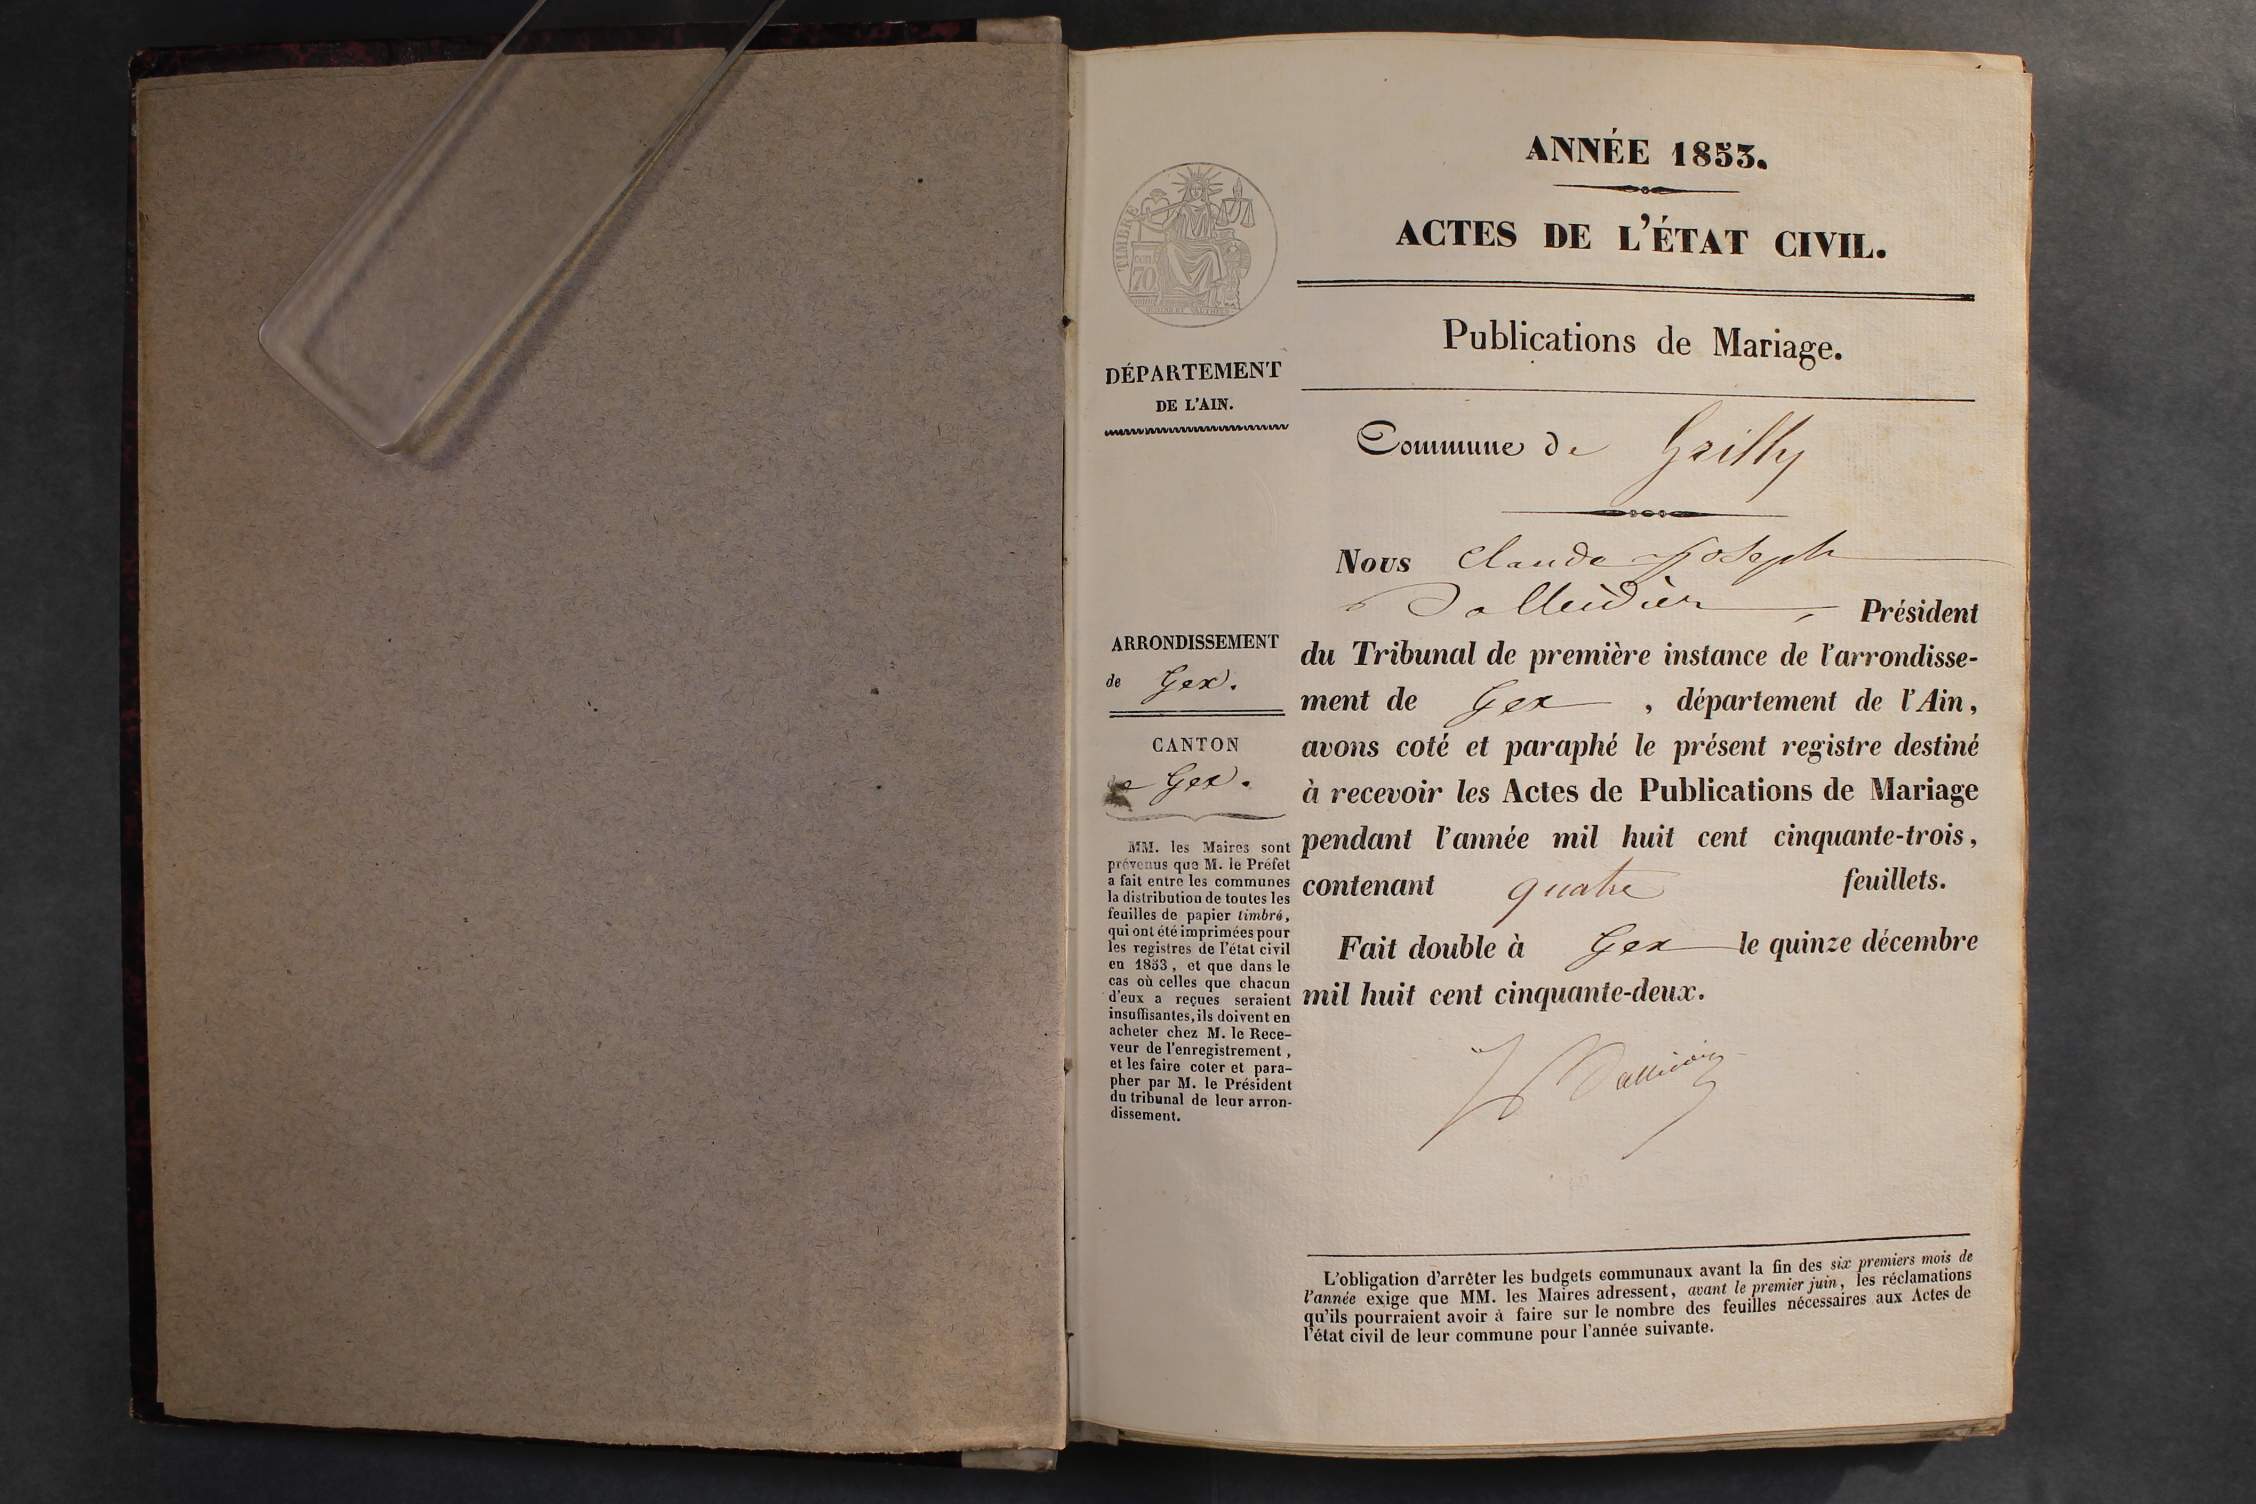 ANNÉE 1853.
ACTES DE L'ÉTAT CIVIL.
Publications de Mariage.
Commune de Grilly
TIMBRE
70
DÉPARTEMENT
DE L'AIN.
ARRONDISSEMENT
de Gex.
CANTON
de Gex.
MM. les Maires sont
prévenus que M. le Préfet
a fait entre les communes
la distribution de toutes les
feuilles de papier timbré,
qui ont été imprimées pour
les registres de l'état civil
en 1853, et que dans le
cas où celles que chacun
d'eux a reçues seraient
insuffisantes, ils doivent en
acheter chez M. le Rece-
veur de l'enregistrement,
et les faire coter et para-
pher par M. le Président
du tribunal de leur arron-
dissement.
Nous Claude Joseph
Président
du Tribunal de première instance de l'arrondisse-
ment de Gex, département de l'Ain,
avons coté et paraphé le présent registre destiné
à recevoir les Actes de Publications de Mariage
pendant l'année mil huit cent cinquante-trois,
contenant quatre feuillets.
Fait double à Gex le quinze décembre
mil huit cent cinquante-deux.
L'obligation d'arrêter les budgets communaux avant la fin des six premiers mois de
l'année exige que MM. les Maires adressent, avant le premier juin, les réclamations
qu'ils pourraient avoir à faire sur le nombre des feuilles nécessaires aux Actes de
l'état civil de leur commune pour l'année suivante.